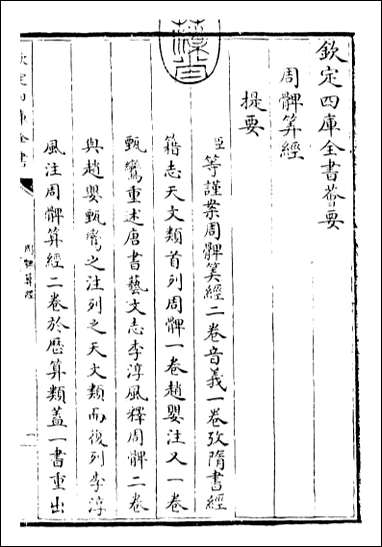 欽定四庫全書薈要
周髀算經
提要
臣等謹案周髀算經二卷音義一卷攷隋書經
籍志天文類首列周髀一卷趙嬰注又一卷
甄鸞重述唐書藝文志李淳風釋周髀二卷
與趙嬰甄鸞之注列之天文類而復列李淳
風注周髀算經二卷於歷算類蓋一書重出
欽定四庫全書
周髀算經
一